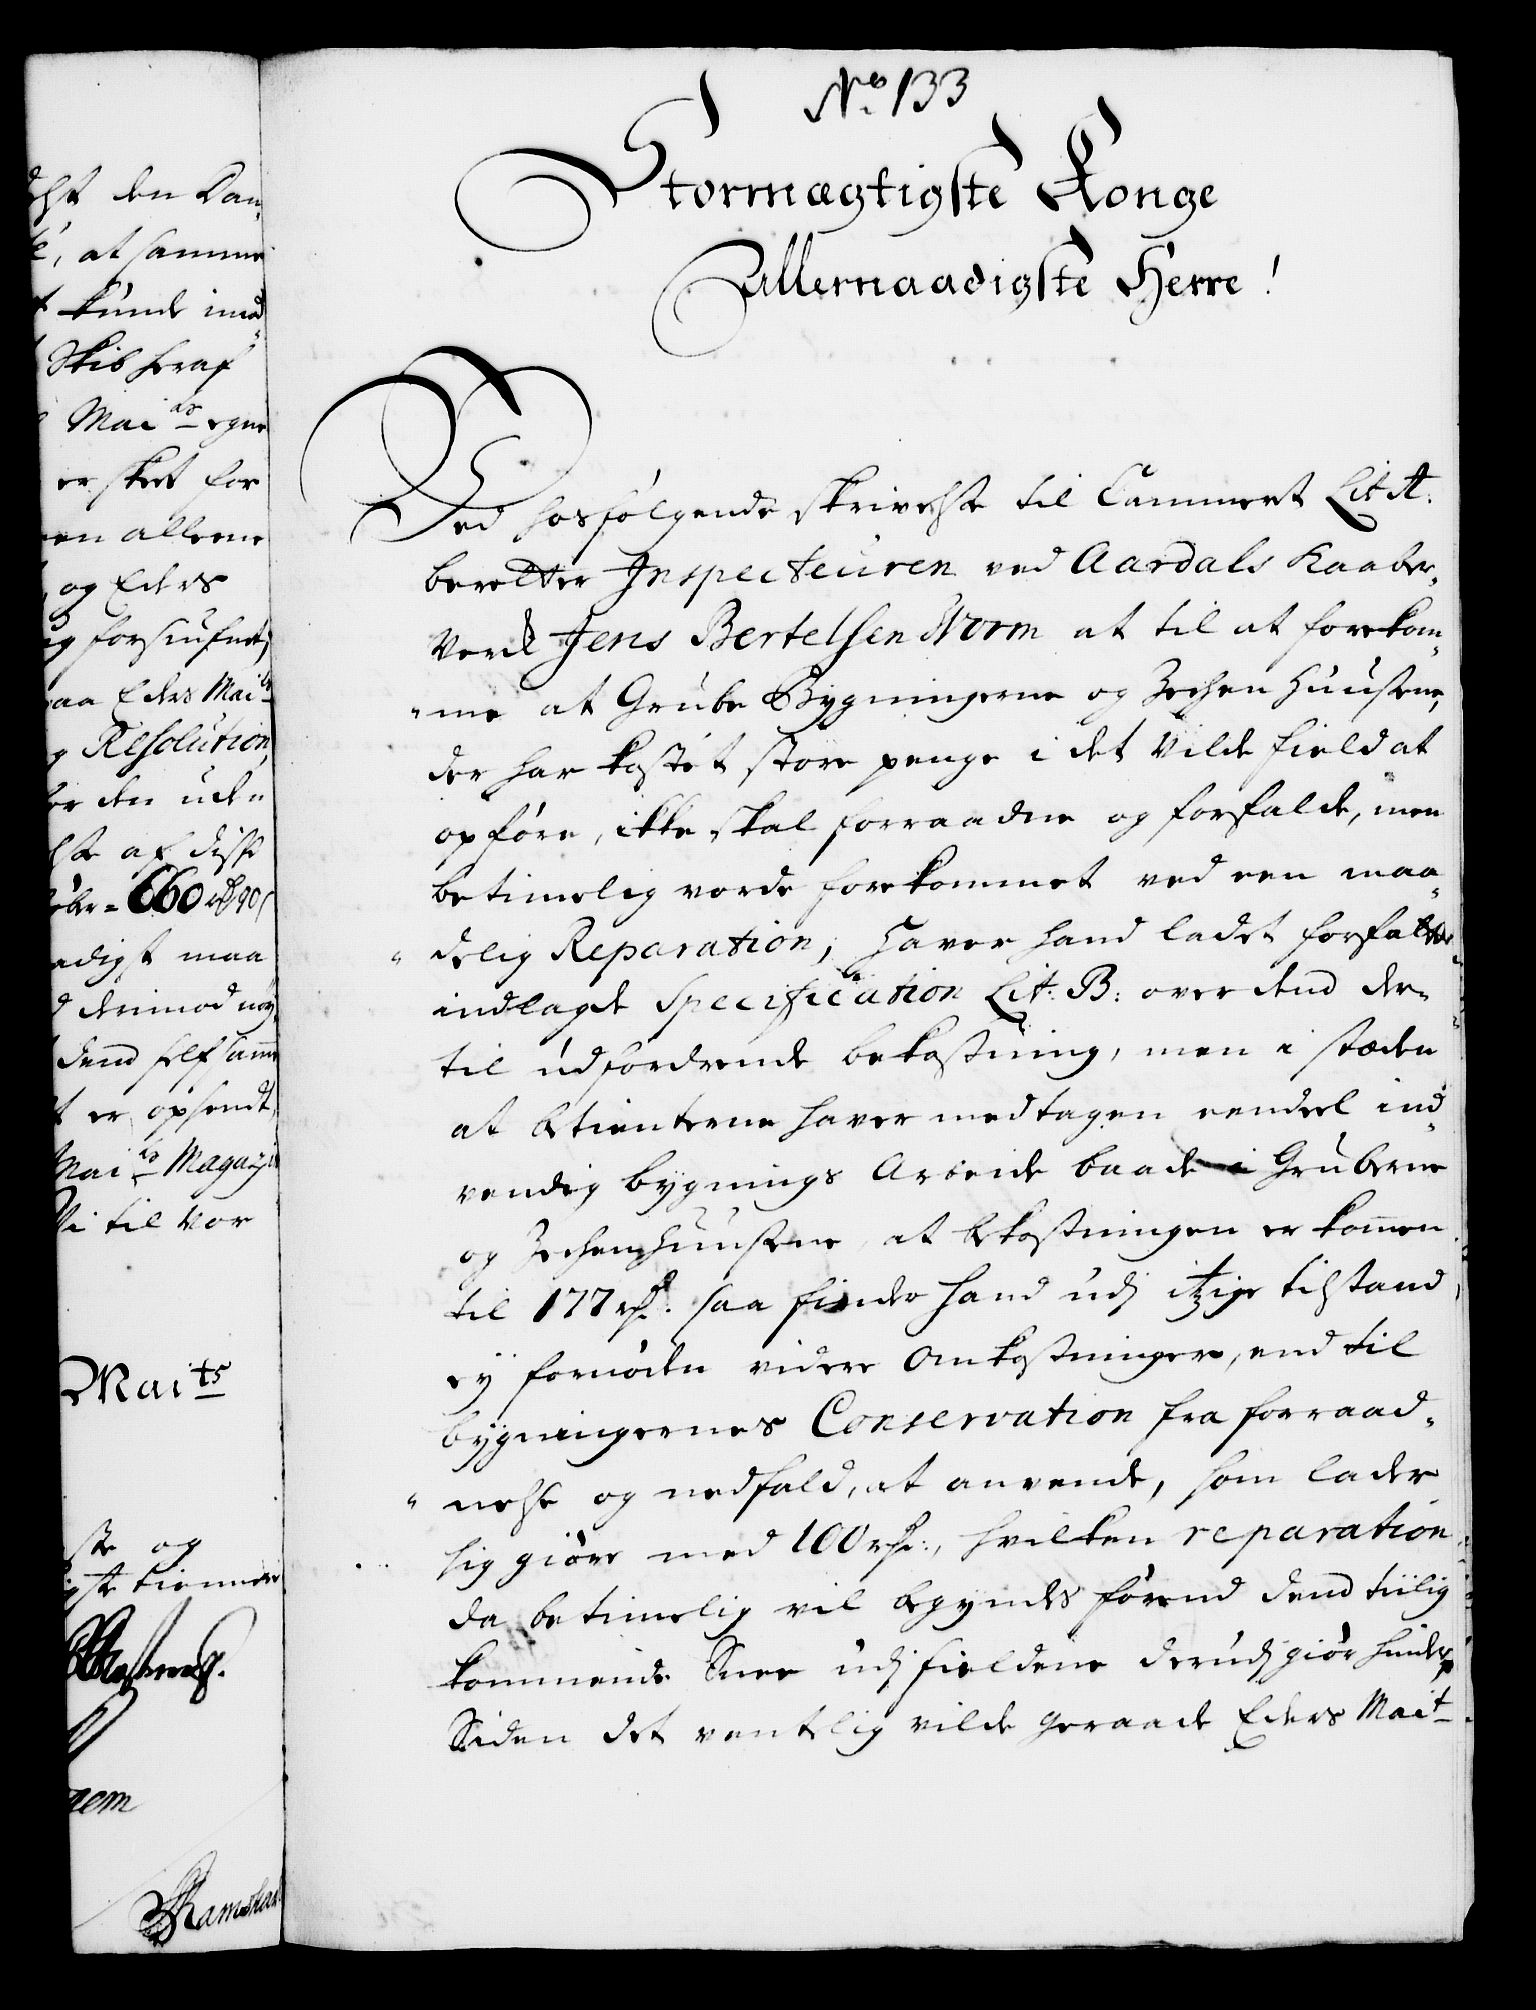 No 133
Stormægtigste Konge
Allernaadigste Herre!
Ved hosfølgende skrivelse til Cammeret Lit A:
beretter Inspecteuren ved Aardals Kaaber-
Verck Jens Bertelsen Worm at til at forekom-
me at Grube Bygningerne og Zechen Huusene,
der har kostet store penge i det Vilde field at
opføre, ikke skal forraadne og forfalde, men
betimelig vorde forekommet ved een maa-
delig Reparation, haver hand ladet forfatte
indlagde Specification Lit: B: over dend der-
til udfordrende bekostning, men i stæden
at betienterne haver medtagen eendeel ind-
vendig bygnings Arbeide baade i Gruberne
og Zechenhuusene, at bekostningen er kommen
til 177 rdr. saa finder hand udj itzige tilstand,
ey fornøden videre Omkostninger, end til
bygningernes Conservation fra forraad-
nelse og nedfald, at anvende, som lader
sig giøre med 100 rdr:, hvilken reparation
da betimelig vil begyndes førend dend tiilig
kommende Snee udj fieldene derudj giør hinder,
Siden det ventelig vilde geraade Eders Mait
den Dan-
, at samme
kunde imod
Skib heraf
Maits egne
er skeet for
en alleene
og Eders
forskufne
aa Eders Maits
Resolution,
den uden
af disse
660 rdr 90 s
adigst maa
derimod nøy
dend self samme
er opsendt,
Maits Magazin
til vor
Maits
og
tienere